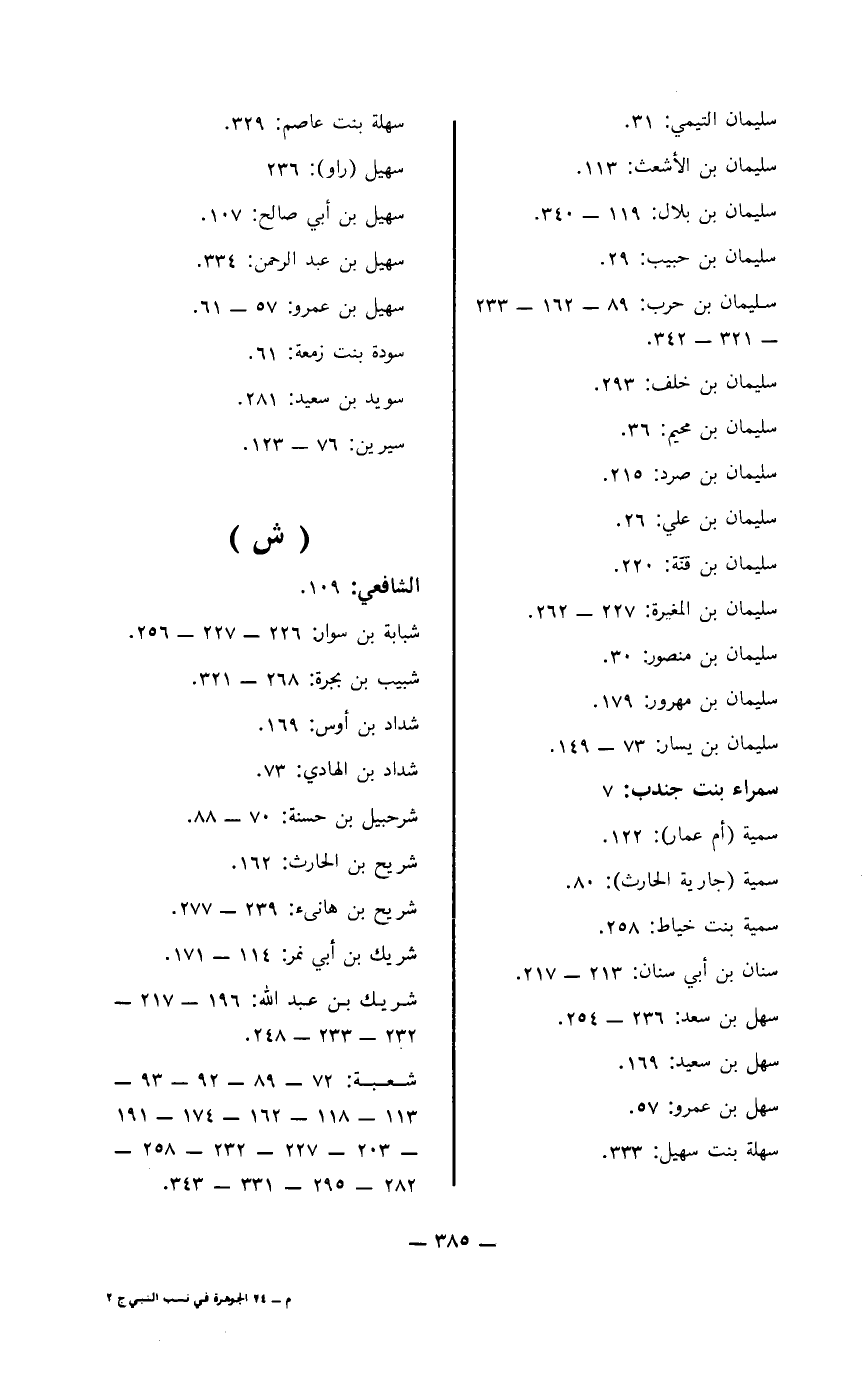 سليمان التيمي: ٣١.
سليمان بن الأشعث: ١١٣.
سليمان بن بلال: ١١٩ — ٣٤٠.
سليمان بن حبيب: ٢٩.
سليمان بن حرب: ٨٩ — ١٦٢ — ٢٣٣
— ٣٢١ — ٣٤٢.
سليمان بن خلف: ٢٩٣.
سليمان بن محيم: ٣٦.
سليمان بن صرد: ٢١٥.
سليمان بن علي: ٢٦.
سليمان بن قتة: ٢٢٠.
سليمان بن المغيرة: ٢٢٧ — ٢٦٢.
سليمان بن منصور: ٣٠.
سليمان بن مهرور: ١٧٩.
سليمان بن يسار: ٧٣ — ١٤٩.
سمراء بنت جندب: ٧
سمية (أم عمار): ١٢٢.
سمية (جارية الحارث): ٨٠.
سمية بنت خياط: ٢٥٨.
سنان بن أبي سنان: ٢١٣ — ٢١٧.
سهل بن سعد: ٢٣٦ — ٢٥٤.
سهل بن سعيد: ١٦٩.
سهل بن عمرو: ٥٧.
سهلة بنت سهيل: ٣٣٣.
سهلة بنت عاصم: ٣٢٩.
سهيل (راو): ٢٣٦
سهيل بن أبي صالح: ١٠٧.
سهيل بن عبد الرحمن: ٣٣٤.
سهيل بن عمرو: ٥٧ — ٦١.
سودة بنت زمعة: ٦١.
سويد بن سعيد: ٢٨١.
سيرين: ٧٦ — ١٢٣.
( ش )
الشافعي: ١٠٩.
شبابة بن سوار: ٢٢٦ — ٢٢٧ — ٢٥٦.
شبيب بن بجرة: ٢٦٨ — ٣٢١.
شداد بن أوس: ١٦٩.
شداد بن الهادي: ٧٣.
شرحبيل بن حسنة: ٧٠ — ٨٨.
شريح بن الحارث: ١٦٢.
شريح بن هانىء: ٢٣٩ — ٢٧٧.
شريك بن أبي نمر: ١١٤ — ١٧١.
شريك بن عبد الله: ١٩٦ — ٢١٧ —
٢٣٢ — ٢٣٣ — ٢٤٨.
شعبة: ٧٢ — ٨٩ — ٩٢ — ٩٣ —
١١٣ — ١١٨ — ١٦٢ — ١٧٤ — ١٩١
— ٢٠٣ — ٢٢٧ — ٢٣٢ — ٢٥٨ —
٢٨٢ — ٢٩٥ — ٣٣١ — ٣٤٣.
— ٣٨٥ —
م — ٢٤ الجوهرة في نسب النبي ج ٢